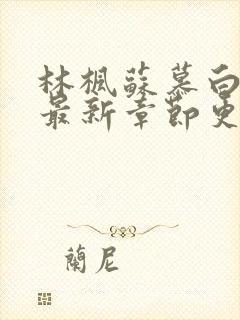 林楓蘇慕白
最新章節更
蘭尼